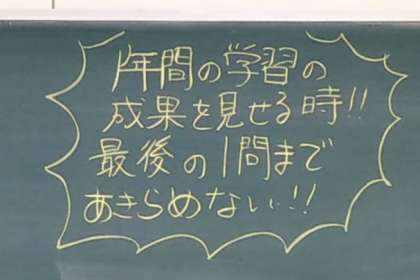 1年間の学習の
成果を見せる時!!
最後の1問まで
あきらめない!!